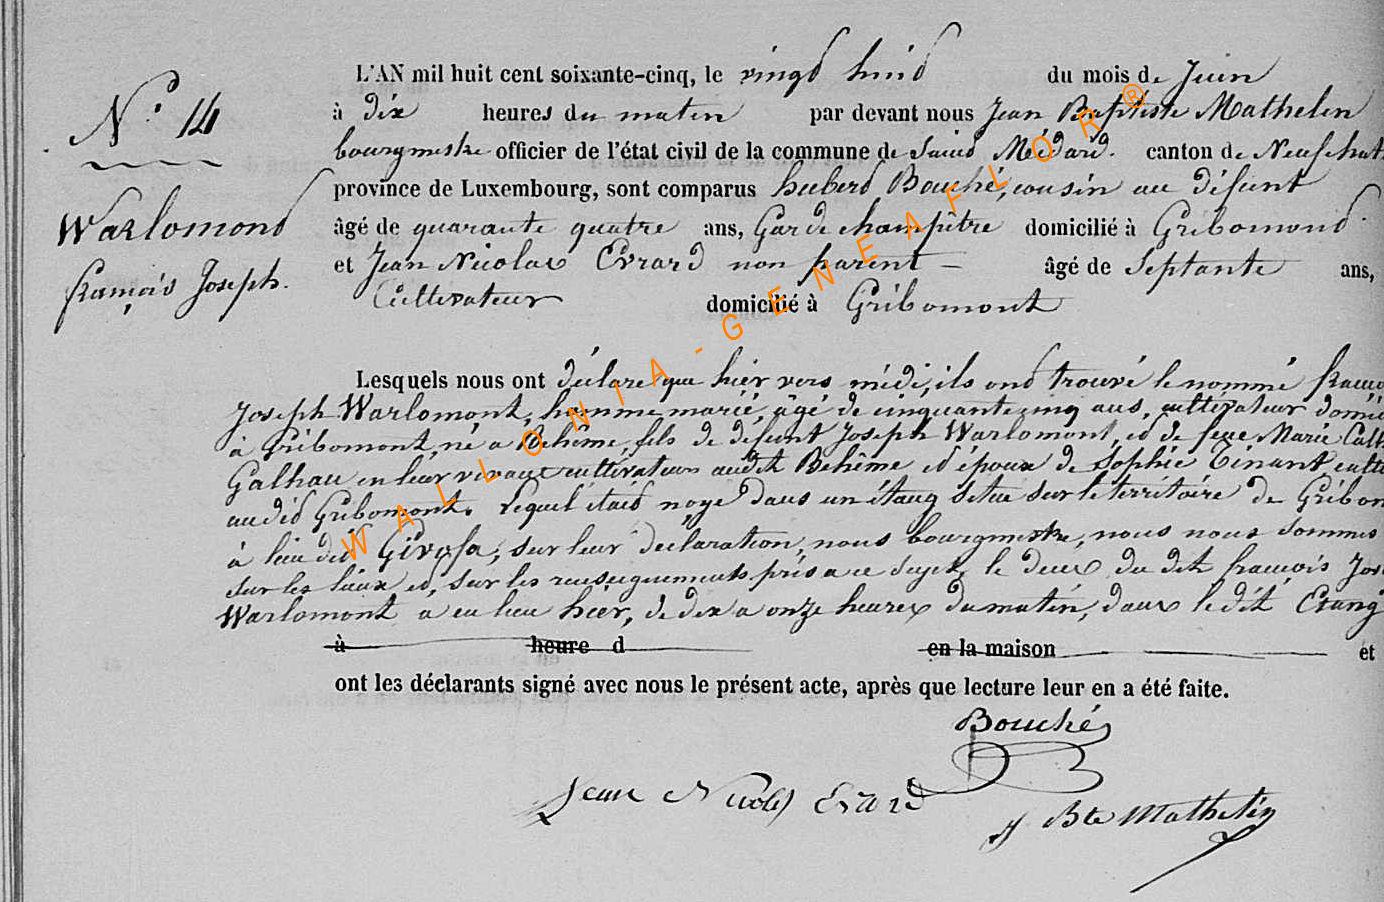 N.° 14
Warlomont
françois Joseph.
L'AN mil huit cent soixante-cinq, le vingt huit du mois de Juin
à dix heures du matin par devant nous Jean Baptiste Mathelin
bourgmestre officier de l'état civil de la commune de Saint Médard. canton de Neufchat
province de Luxembourg, sont comparus hubert Bouché, cousin au défunt
âgé de quarante quatre ans, Garde champêtre domicilié à Gribomont
et Jean Nicolas Evrard non parent — âgé de Septante ans,
Cultivateur domicilié à Gribomont
Lesquels nous ont déclaré que hier vers midi, ils ont trouvé le nommé
Joseph Warlomont, homme marié, âgé de cinquante cinq ans, cultivateur domi
à Gribomont, né a Behême, fils de défunt Joseph Warlomont, et de feue Marie Cath
Galhau en leur vivant cultivateurs audit Behême et époux de Sophie Tinant culti
audit Gribomont. Lequel était noyé dans un étang situé sur le territoire de Gribom
à lieu dit sur leur déclaration, nous bourgmestre, nous nous sommes
sur les lieux et, sur les renseignements pris a ce sujet, le deces du dit françois Jos
Warlomont a eu lieu hier, de dix a onze heures du matin, dans le dit Etang
à heure d en la maison et
ont les déclarants signé avec nous le présent acte, après que lecture leur en a été faite.
Bouché
Jean Nicolas Evrard
J Bte Mathelin
WALLONIA-GENEAFLOR®